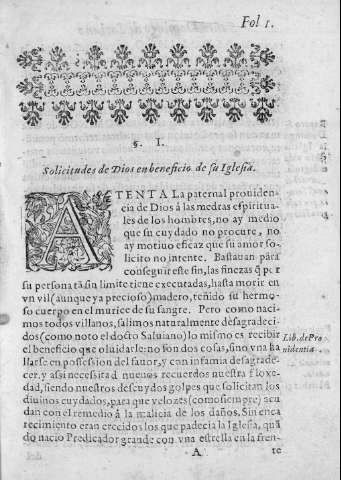 Fol 1.
§. I.
Solicitudes de Dios en beneficio de su Iglesia.
ATENTA La paternal prouiden-
cia de Dios á las medras espiritua-
les de los hombres, no ay medio
que su cuydado no procure, no
ay motiuo eficaz que su amor so-
licito no intente. Bastauan para
conseguir este fin, las finezas q̃ por
su persona tã sin limite tiene executadas, hasta morir en
vn vil (aunque ya precioso) madero, teñido su hermo-
so cuerpo en el murice de su sangre. Pero como naci-
mos todos villanos, salimos naturalmente desagradeci-
dos (como noto el docto Saluiano) lo mismo es recibir
el beneficio que oluidarle: no son dos cosas, sino vna ha
llarse en possession del fauor, y con infamia desagrade-
cer. y assi necessita dẽ nueuos recuerdos nuestra floxe-
dad, siendo nuestros descuydos golpes que solicitan los
diuinos cuydados, para que velozes (como siempre) acu
dan con el remedio á la malicia de los daños. Sin enca
recimiento eran crecidos los que padecia la Iglesia, quã
do nacio Predicador grande con vna estrella en la fren-
Lib. de Pro
uidentia.
A
te